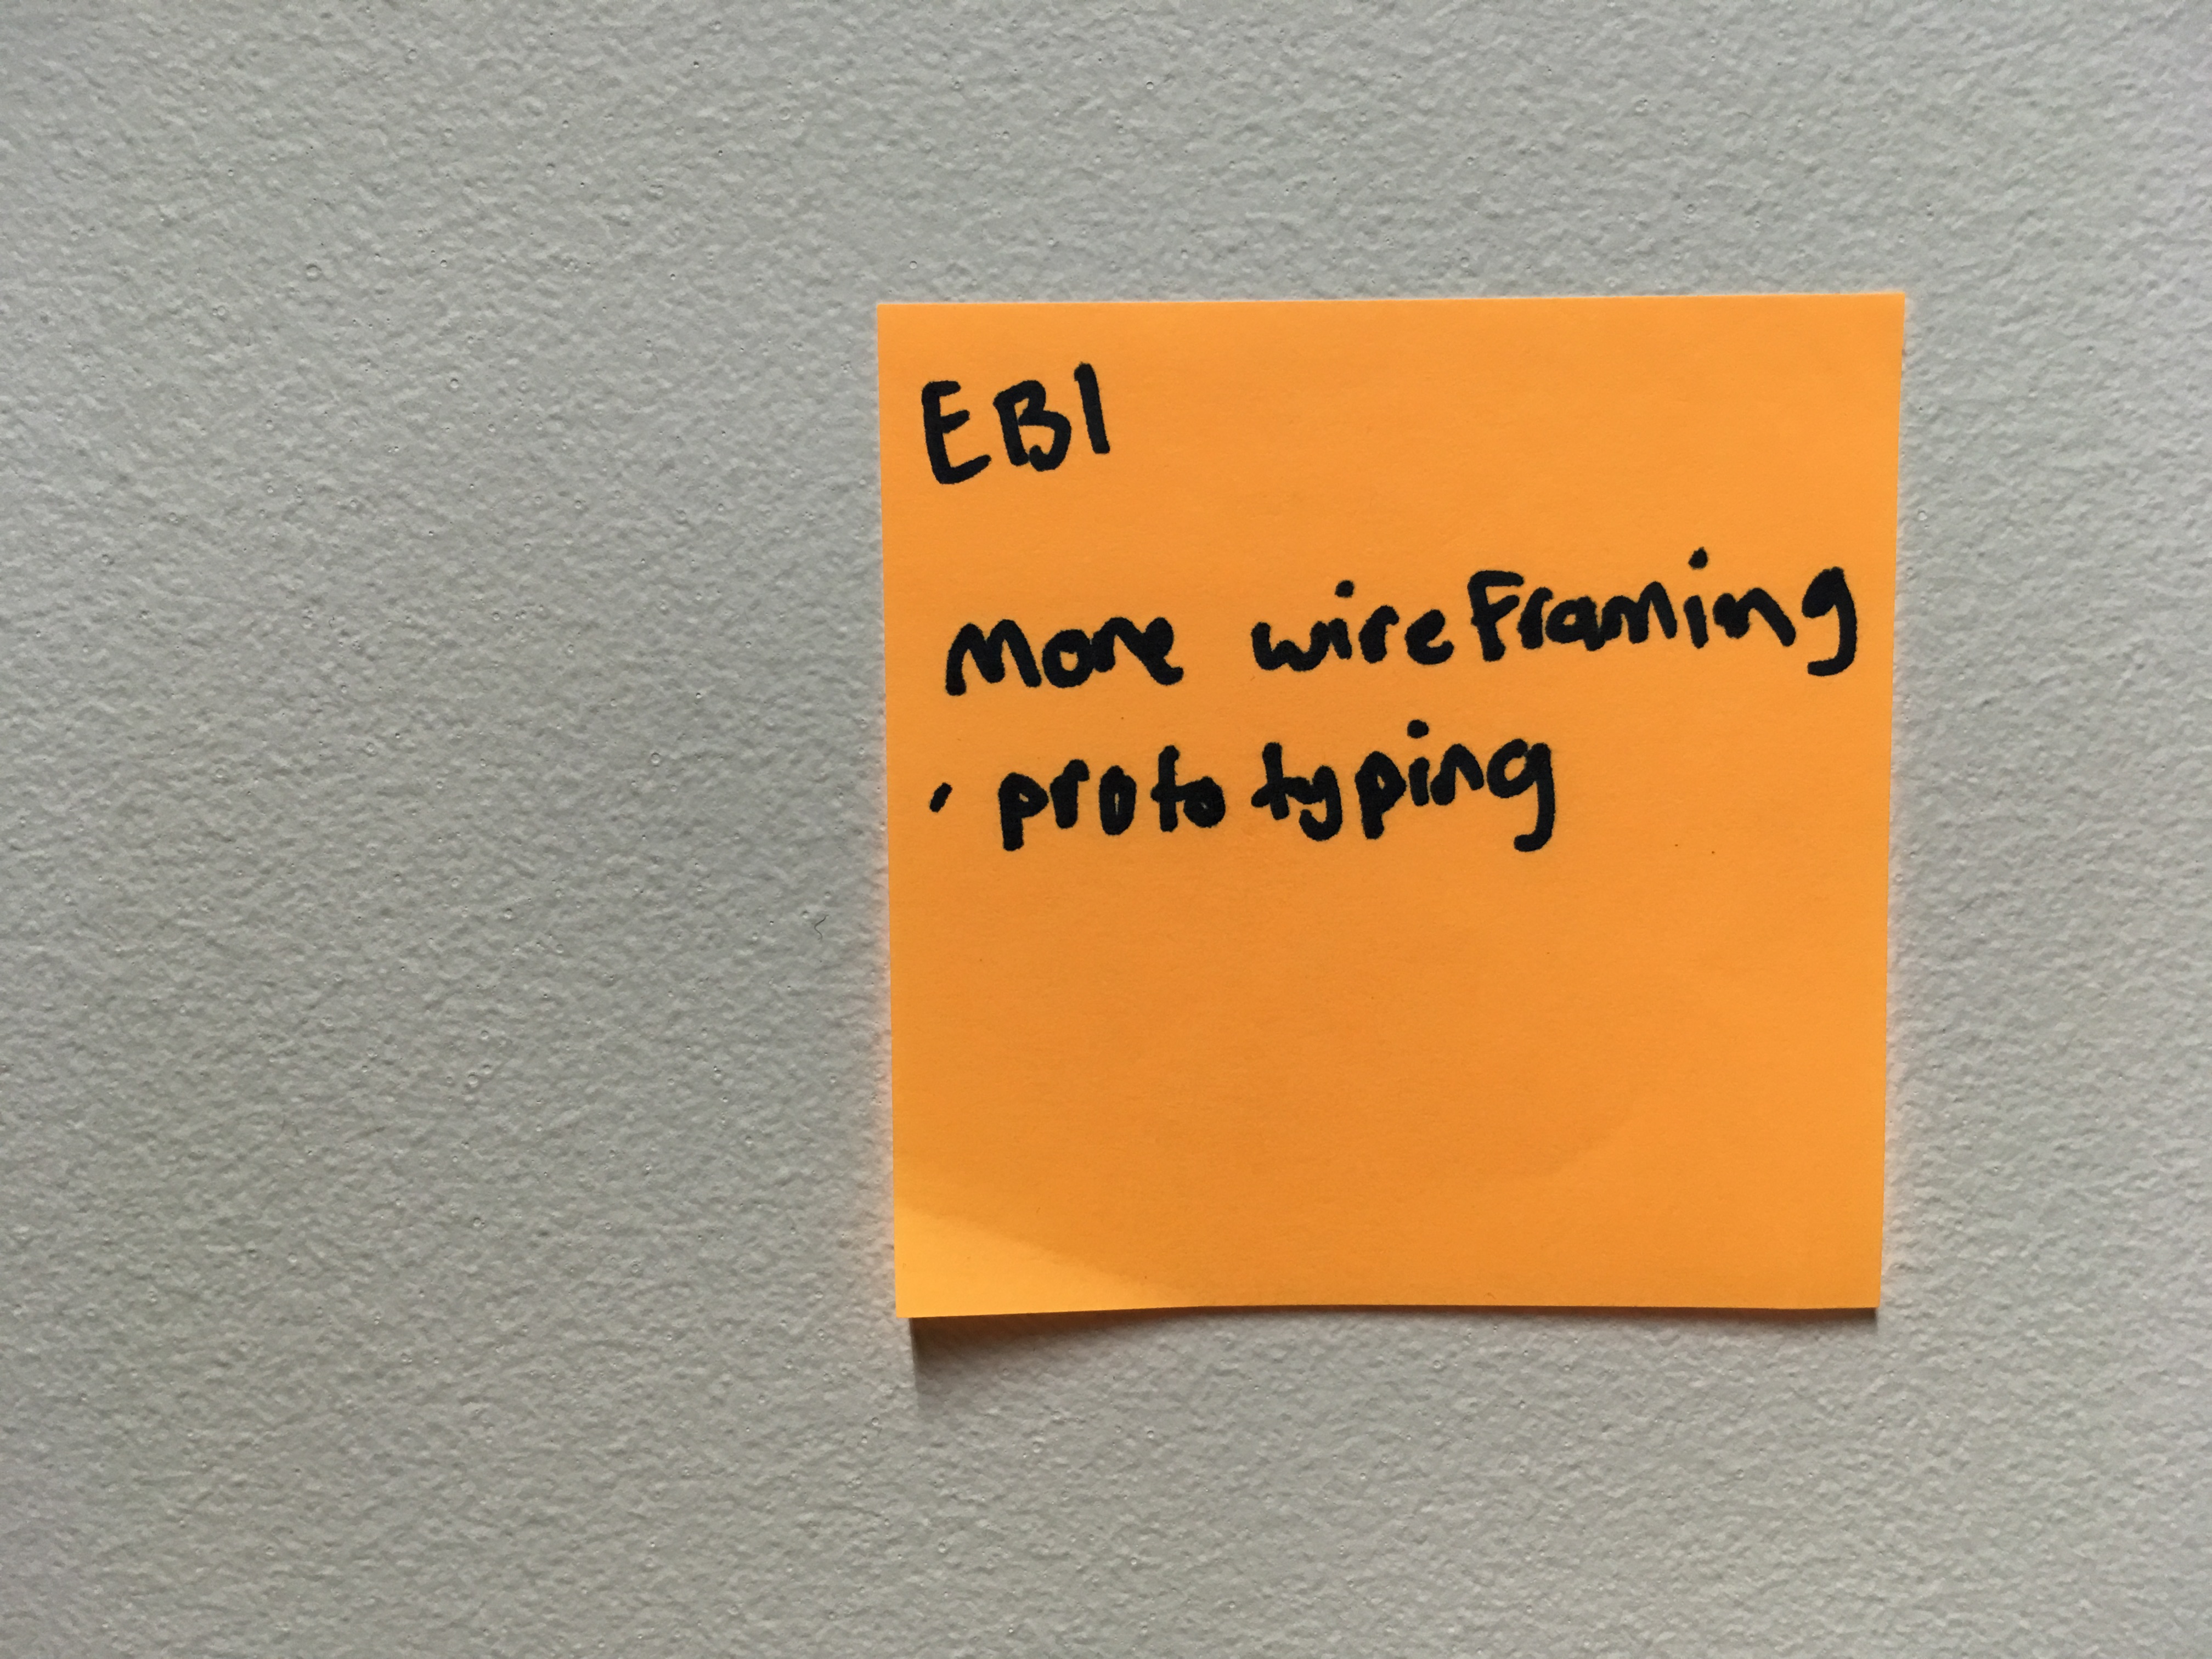 EBI
More wireframing
· prototyping